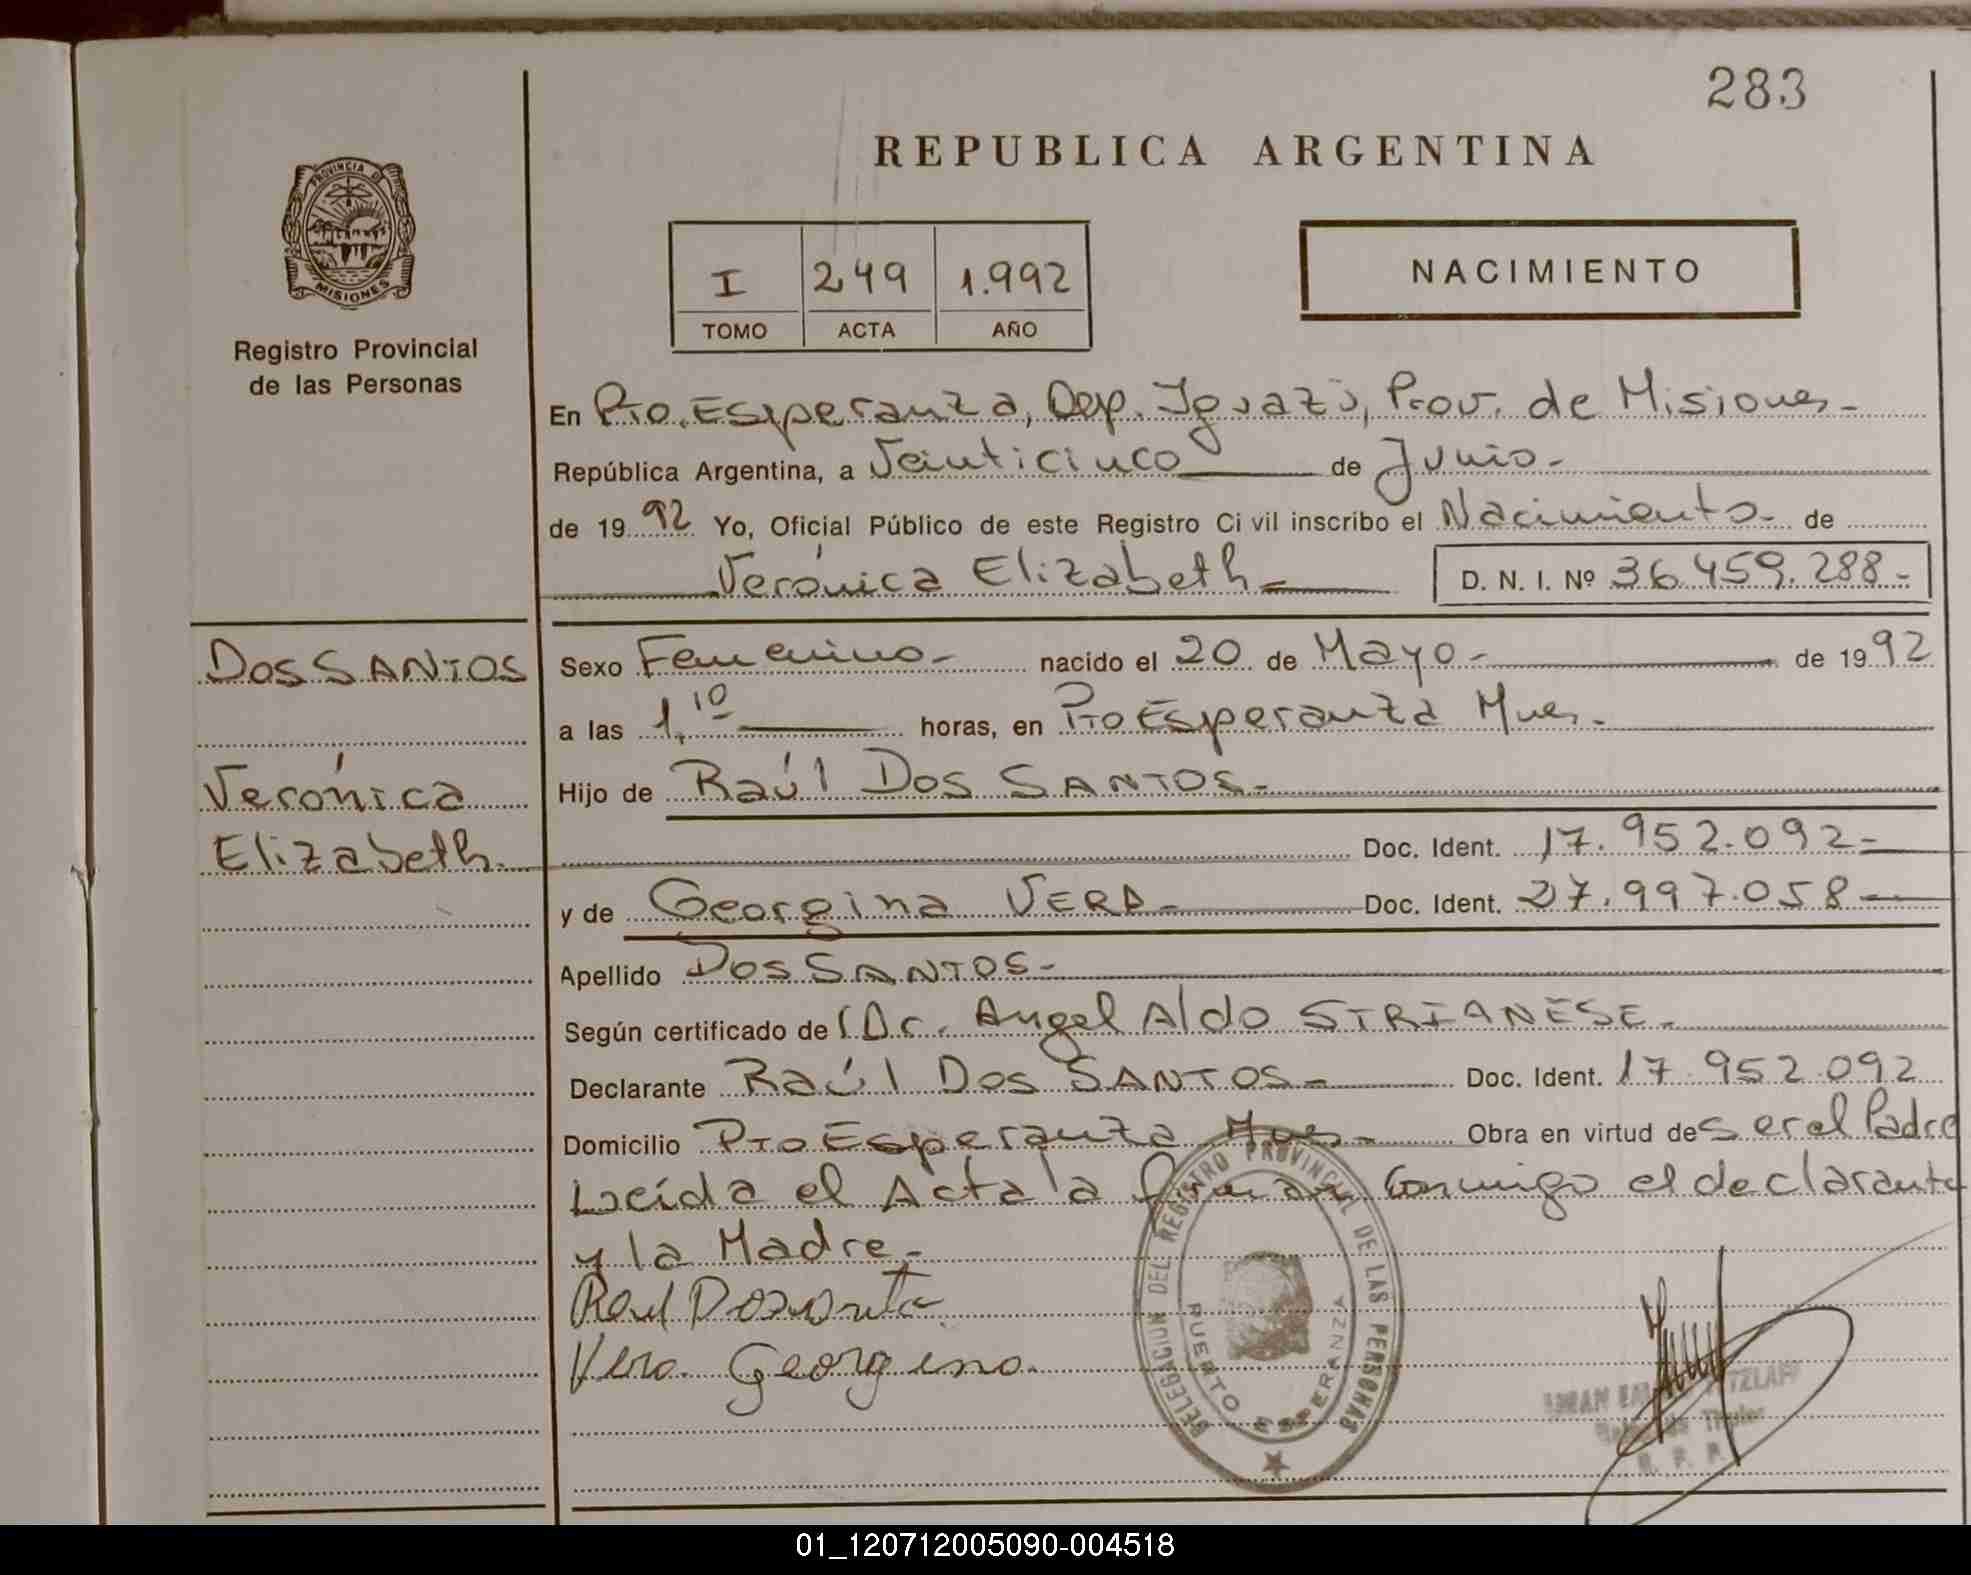 283
REPUBLICA ARGENTINA
PROVINCIA DE
MISIONES
Registro Provincial
de las Personas
I 249 1.992
TOMO ACTA AÑO
NACIMIENTO
En Pto. Esperanza, Dep. Iguazú, Prov. de Misiones-
República Argentina, a Veinticinco de Junio-
de 1992 Yo, Oficial Público de este Registro Civil inscribo el Nacimiento- de
Verónica Elizabeth- D. N. I. Nº 36.459.288-
DOS SANTOS
Verónica
Elizabeth.
Sexo Femenino- nacido el 20 de Mayo- de 1992
a las 1,10 horas, en Pto Esperanza Mnes.
Hijo de Raúl DOS SANTOS-
Doc. Ident. 17.952.092-
y de Georgina VERA- Doc. Ident. 27.997.058-
Apellido DOS SANTOS-
Según certificado de Dr. Angel Aldo STRIANESE-
Declarante Raúl DOS SANTOS- Doc. Ident. 17.952.092
Domicilio Pto Esperanza Mnes- Obra en virtud de ser el Padre
Leída el Acta la firman conmigo el declarante
y la Madre-
Vera Georgina
DELEGACION DEL REGISTRO PROVINCIAL DE LAS PERSONAS
PUERTO ESPERANZA
Titular
R. P. P.
01_120712005090-004518